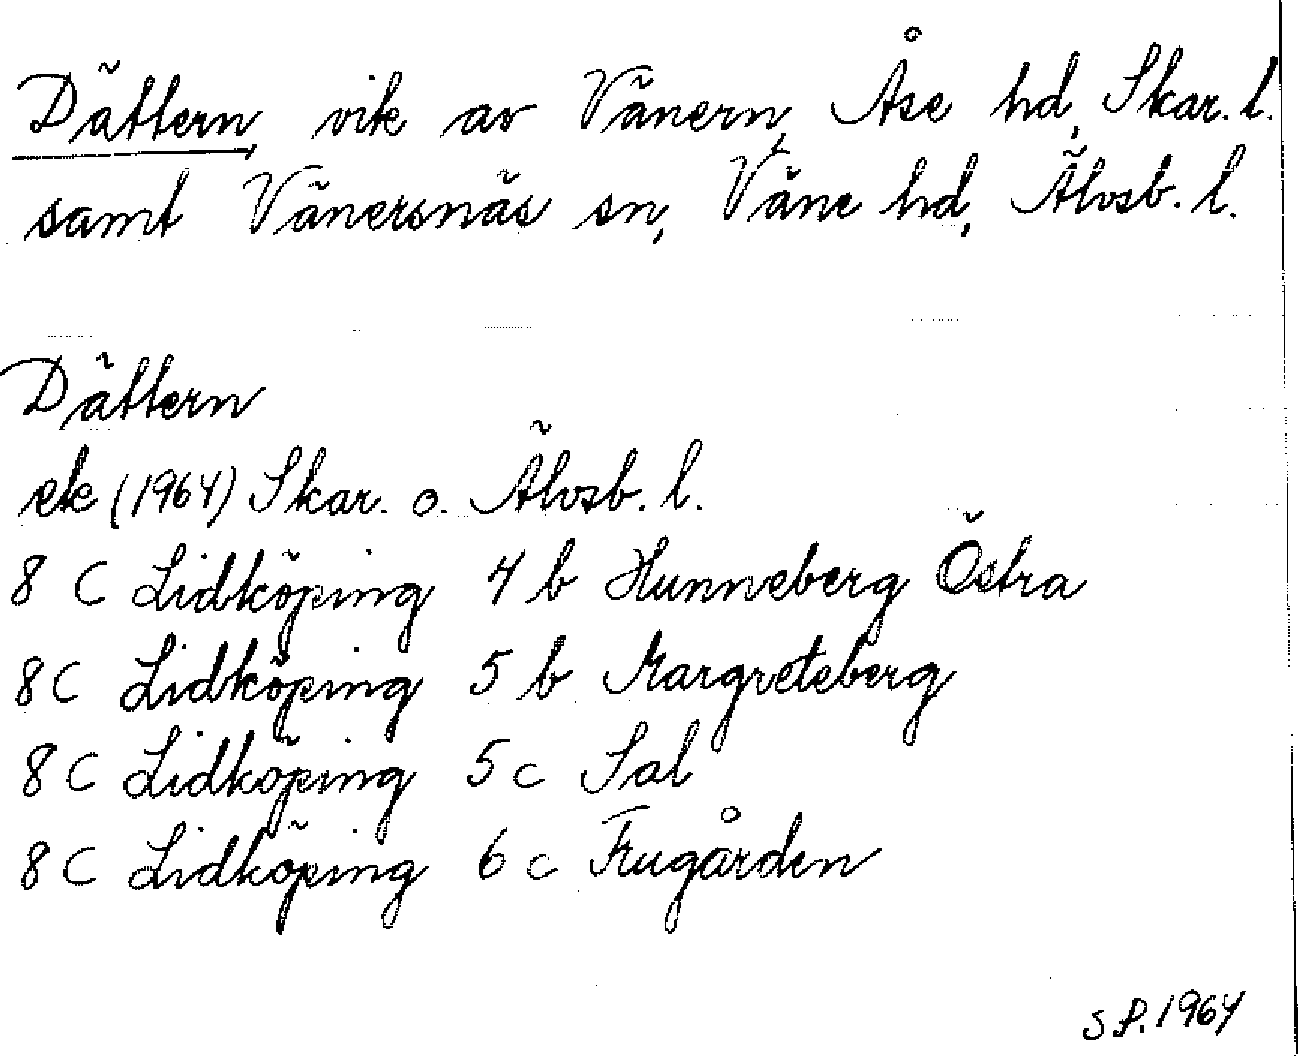 Dättern, vik av Vänern, Åse hd, Skar. l.
samt Vänersnäs sn, Väne hd, Älvsb. l.
Dättern
ek (1964) Skar. o. Älvsb. l.
8 C Lidköping 4 b Hunneberg Östra
8 C Lidköping 5 b Margreteberg
8 C Lidköping 5 c Sal
8 C Lidköping 6 c Frugården
S P. 1964